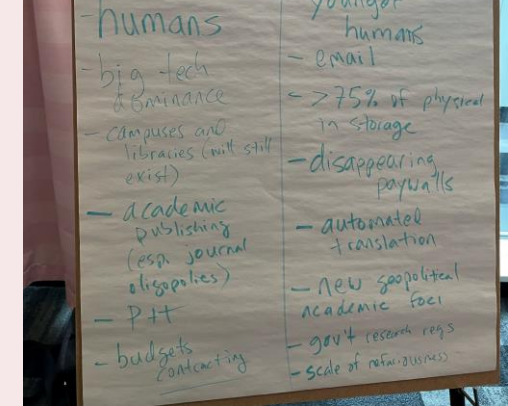 -humans
- big tech
dominance
- campuses and
libraries (will still
exist)
- academic
publishing
(esp. journal
oligopolies)
- P+T
- budgets
contracting
younger
humans
- email
- >75% of physical
in storage
- disappearing
paywalls
- automated
translation
- new geopolitical
academic foci
- gov't research regs
- scale of nefariousness